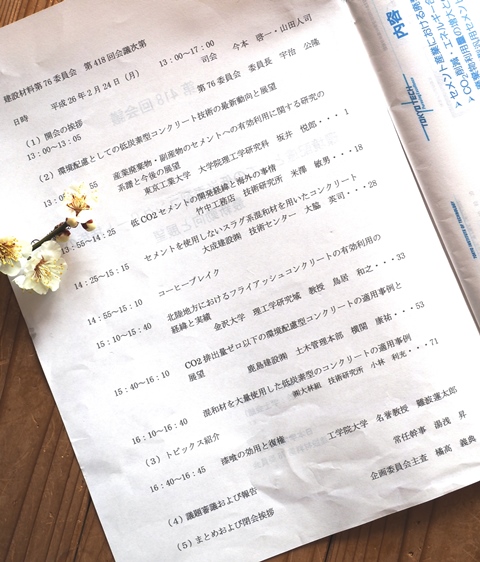 建設材料第76委員会 第418回会議次第
日時 平成26年2月24日(月) 13:00~17:00
司会 今本 啓一・山田人司
(1)開会の挨拶 第76委員会 委員長 宇治 公隆
13:00~13:05
(2)環境配慮としての低炭素型コンクリート技術の最新動向と展望
55 産業廃棄物・副産物のセメントへの有効利用に関する研究の
系譜と今後の展望
東京工業大学 大学院理工学研究科 坂井 悦郎・・・1
13:55~14:25 低CO2セメントの開発経緯と海外の事情
竹中工務店 技術研究所 米澤 敏男・・・18
14:25~15:15 セメントを使用しないスラグ系混和材を用いたコンクリート
大成建設㈱ 技術センター 大脇 英司・・・28
14:55~15:10 コーヒーブレイク
15:10~15:40 北陸地方におけるフライアッシュコンクリートの有効利用の
経緯と実績
金沢大学 理工学研究域 教授 鳥居 和之・・・33
15:40~16:10 CO2排出量ゼロ以下の環境配慮型コンクリートの適用事例と
展望
鹿島建設㈱ 土木管理本部 横関 康祐・・・53
16:10~16:40 混和材を大量使用した低炭素型のコンクリートの適用事例
㈱大林組 技術研究所 小林 利充・・・71
(3)トピックス紹介
16:40~16:45 漆喰の効用と復権 工学院大学 名誉教授 難波蓮太郎
(4)議題審議および報告 常任幹事 湯浅 昇
(5)まとめおよび閉会挨拶 企画委員会主査 橘高 義典
内容
TOKYO TECH